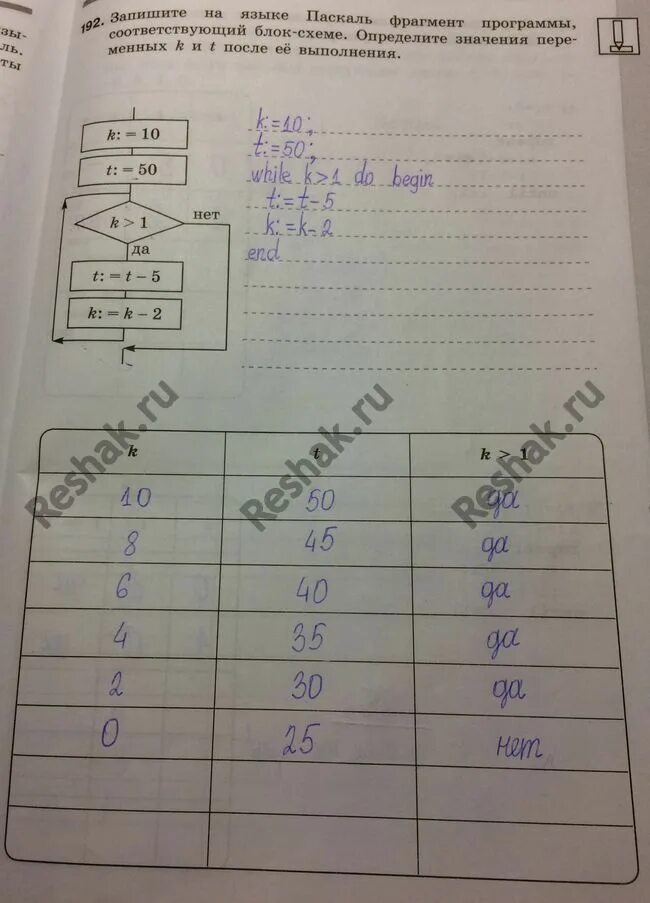 зы-
ль.
ты
192. Запишите на языке Паскаль фрагмент программы,
соответствующий блок-схеме. Определите значения пере-
менных k и t после её выполнения.
k: = 10
t: = 50
k > 1
нет
да
t: = t – 5
k: = k – 2
k:=10;
t:=50;
while k>1 do begin
t:=t-5
k:=k-2
end
k t k > 1
10 50 да
8 45 да
6 40 да
4 35 да
2 30 да
0 25 нет
Reshak.ru
Reshak.ru
Reshak.ru